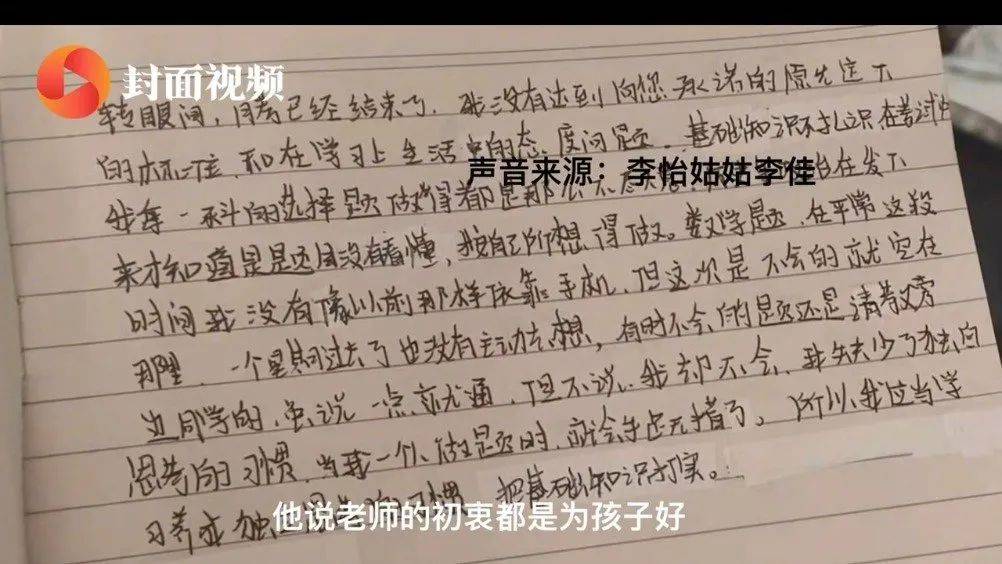 封面视频
转眼间，月考已经结束了，我没有达到向您承诺的
的标准，和在学习上生活中的态度问题。基础知识不扎识在考试中
声音来源：李怡姑姑李佳
我每一科的选择题做得都是那么 在发下
来才知道是题目没有看懂，按自己所想得做。数学题，在平常这段
时间我没有像以前那样依靠手机，但这次是不会的就空在
那里，一个星期过去了也没有主动去想，有时不会的题还是请教旁
边同学的，虽说一点就通，但不说，我却不会，我失少了独自
思考的习惯，当我一个人做题时，就会手足无措了。所以我应当学
习养成独 习惯，把基础知识打实。
他说老师的初衷都是为孩子好